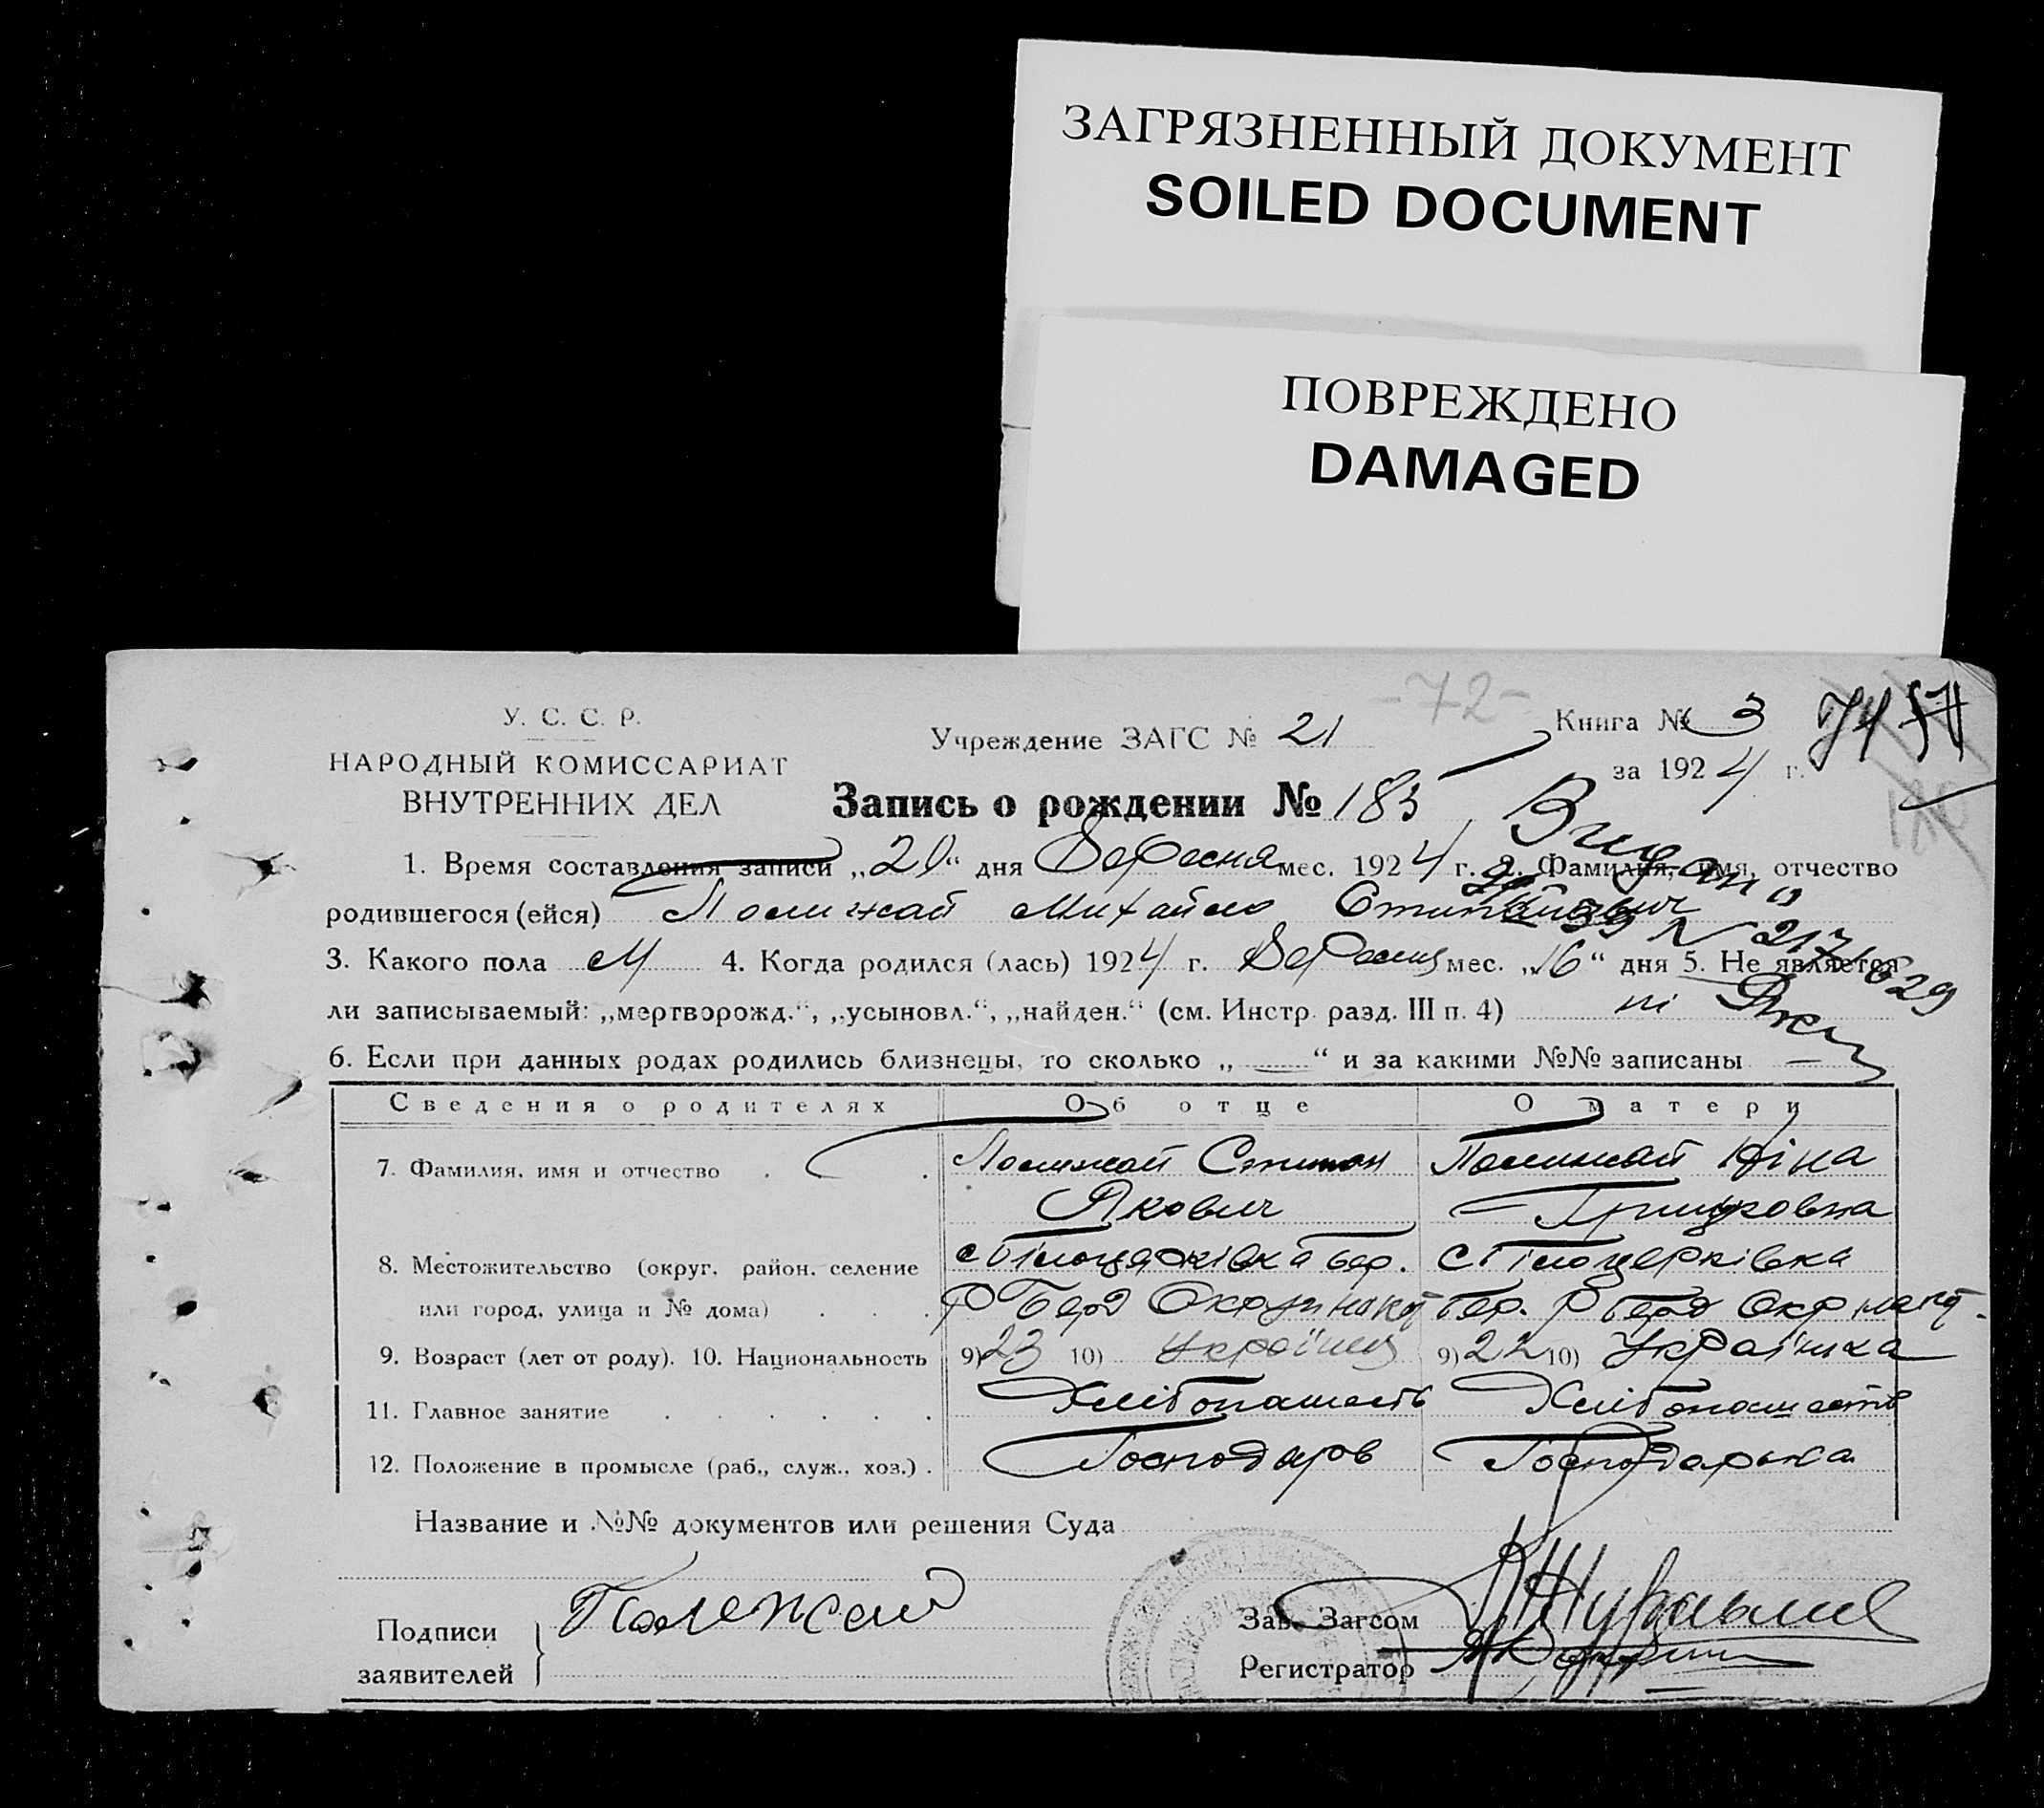 ЗАГРЯЗНЕННЫЙ ДОКУМЕНТ
SOILED DOCUMENT
ПОВРЕЖДЕНО
DAMAGED
-72-
У. С. С. Р.
НАРОДНЫЙ КОМИССАРИАТ
ВНУТРЕННИХ ДЕЛ
Учреждение ЗАГС № 21
Книга № 3
74
за 1924 г.
Запись о рождении № 183
1. Время составления записи „20“ дня Вересня мес. 1924 г. 2. Фамилия, имя, отчество
родившегося (ейся) Полижай Михайло
Видано
39 N 217/629
3. Какого пола М 4. Когда родился (лась) 1924 г. Вересня мес. „16“ дня 5. Не является
ли записываемый: „мертворожд.“, „усыновл.“, „найден.“ (см. Инстр. разд. III п. 4) ні
6. Если при данных родах родились близнецы, то сколько „—“ и за какими №№ записаны —
Сведения о родителях Об отце О матери
7. Фамилия, имя и отчество . . Полижай Степан Полижай Ніна
Якович Грицковна
8. Местожительство (округ, район, селение с Білоцерківка Бер. с Білоцерківка
или город, улица и № дома) . . . Р Берд Окр Бер. Р Берд Окр
9. Возраст (лет от роду). 10. Национальность 9) 23 10) Українец 9) 22 10) Українка
11. Главное занятие . . . . . . Хлібопашеств Хлібопашеств
12. Положение в промысле (раб., служ., хоз.) . Господаров Господарька
Название и №№ документов или решения Суда
Подписи
заявителей
Полежай
Зав. Загсом
Регистратор